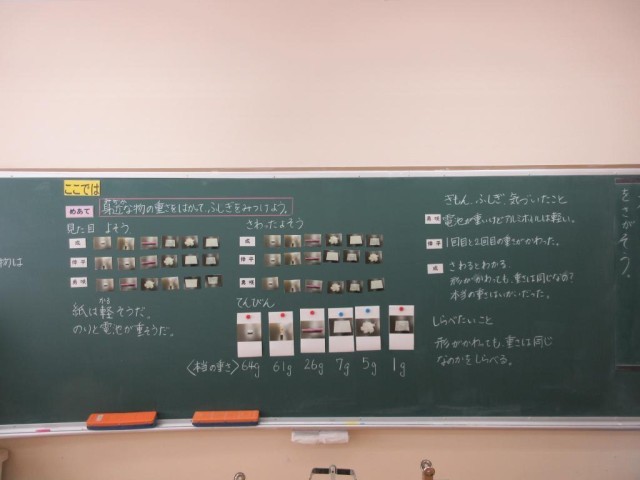 ここでは
めあて
身近な物の重さをはかって、ふしぎをみつけよう。
見た目 よそう
さわったよそう
紙は軽そうだ。
かる
のりと電池が重そうだ。
てんびん
〈本当の重さ〉 64g 61g 26g 7g 5g 1g
ぎもん、ふしぎ、気づいたこと
電池が重いけどアルミホイルは軽い。
1回目と2回目の重さがかわった。
さわるとわかる。
本当の重さはいがいだった。
しらべたいこと
形がかわっても、重さは同じ
なのかをしらべる。
物は
をさがそう。